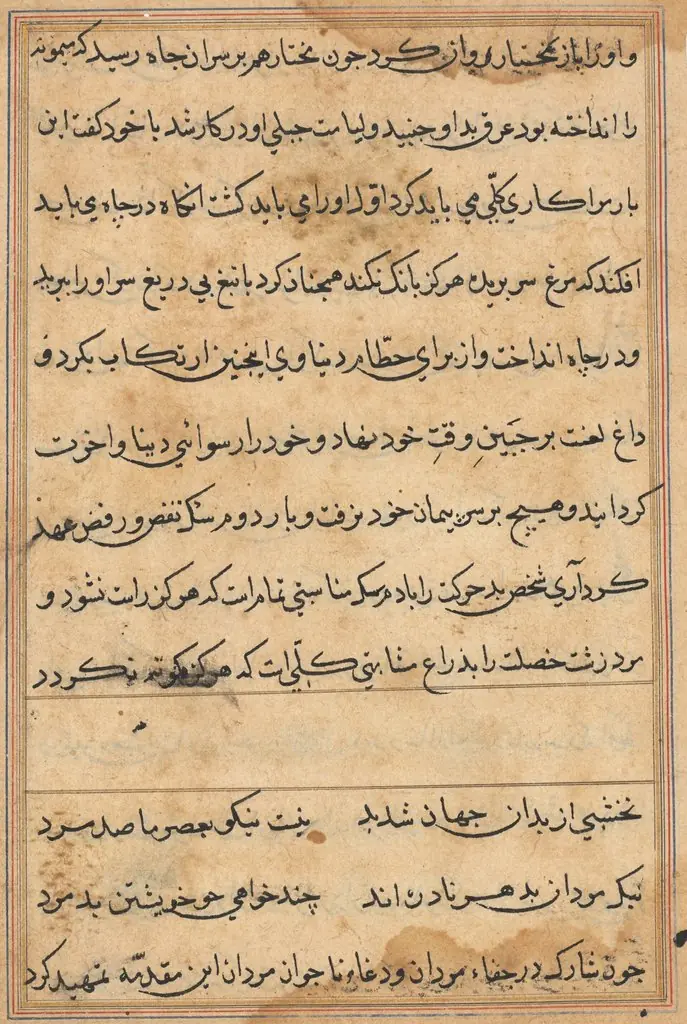 و او را باز بمختار روان کرد جون مختار هم بر سر ان جاه رسید که میمونه
را انداخته بود عرق بد او جنبید و لیامت جبلی او در کار شد با خود کفت این
بار مرا کاری کلّی می باید کرد اوّل او را می باید کشت انکاه در چاه می باید
افکند که مرغ سر بریده هرکز بانک نکند همچنان کرد با تیغ بی دریغ سر او را ببرید
و در چاه انداخت و از برای حطّام دنیاوی اینچنین ارتکاب بکرد و
داغ لعنت بر جَبَینِ وقتِ خود نهاد و خود را رسوائی دینا و اخرت
کردانید و هیچ بر سر پیمان خود نرفت و بار دوم نقض و رفض عهد
کرد آری شخص بد حرکت را با دم سک مناسبتی تمام است که هرکز راست نشود و
مرد زشت خصلت را بذراع مشابهتی کلّی است که هرکز نکردد
نخشبی از بدان جهان شد بد نیت نیکو بعصر ما صد مرد
نیک مردان بدهر نادره اند چند خواهی خویشتن بد مرد
جون شارک در جفاء مردان و دغاء نا جوان مردان این مقدمّه تمهید کرد